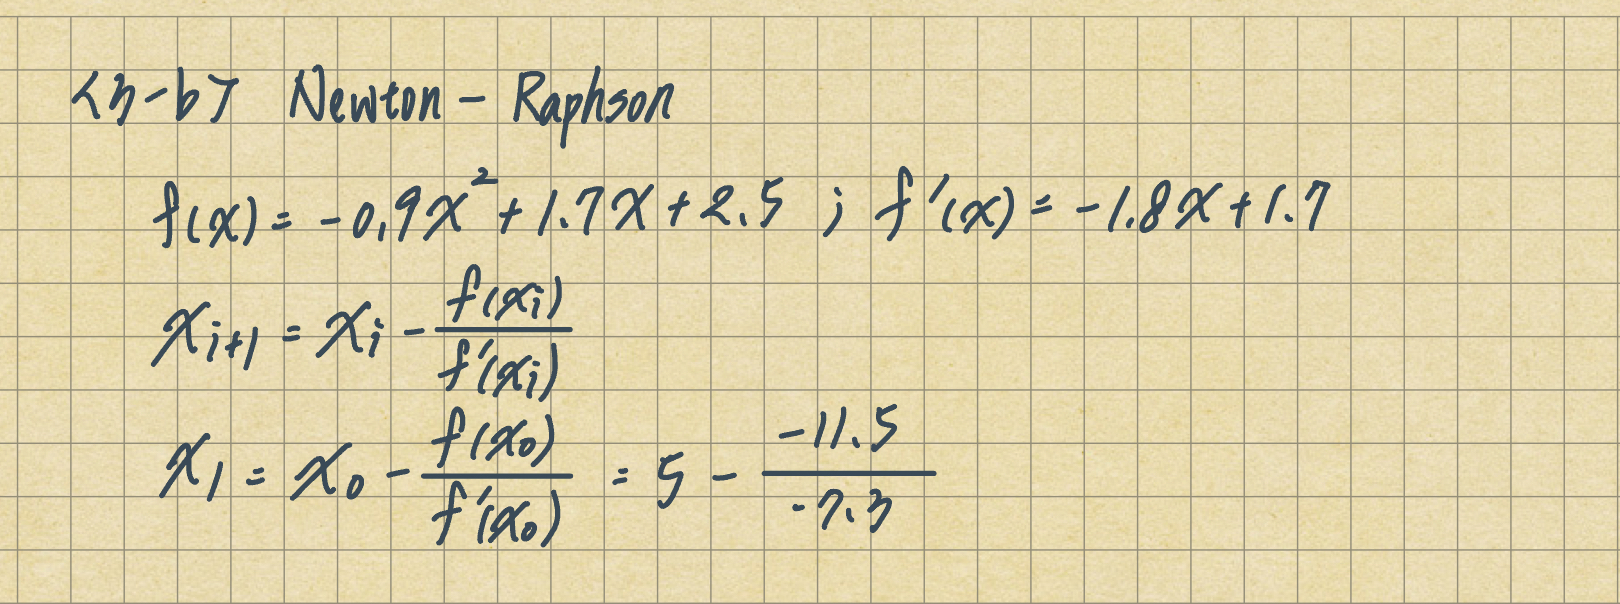 <3-b> Newton-Raphson
f(x) = -0.9x² + 1.7x + 2.5 ; f'(x) = -1.8x + 1.7
x_{i+1} = x_i - f(x_i)/f'(x_i)
x_1 = x_0 - f(x_0)/f'(x_0) = 5 - -11.5/-7.3